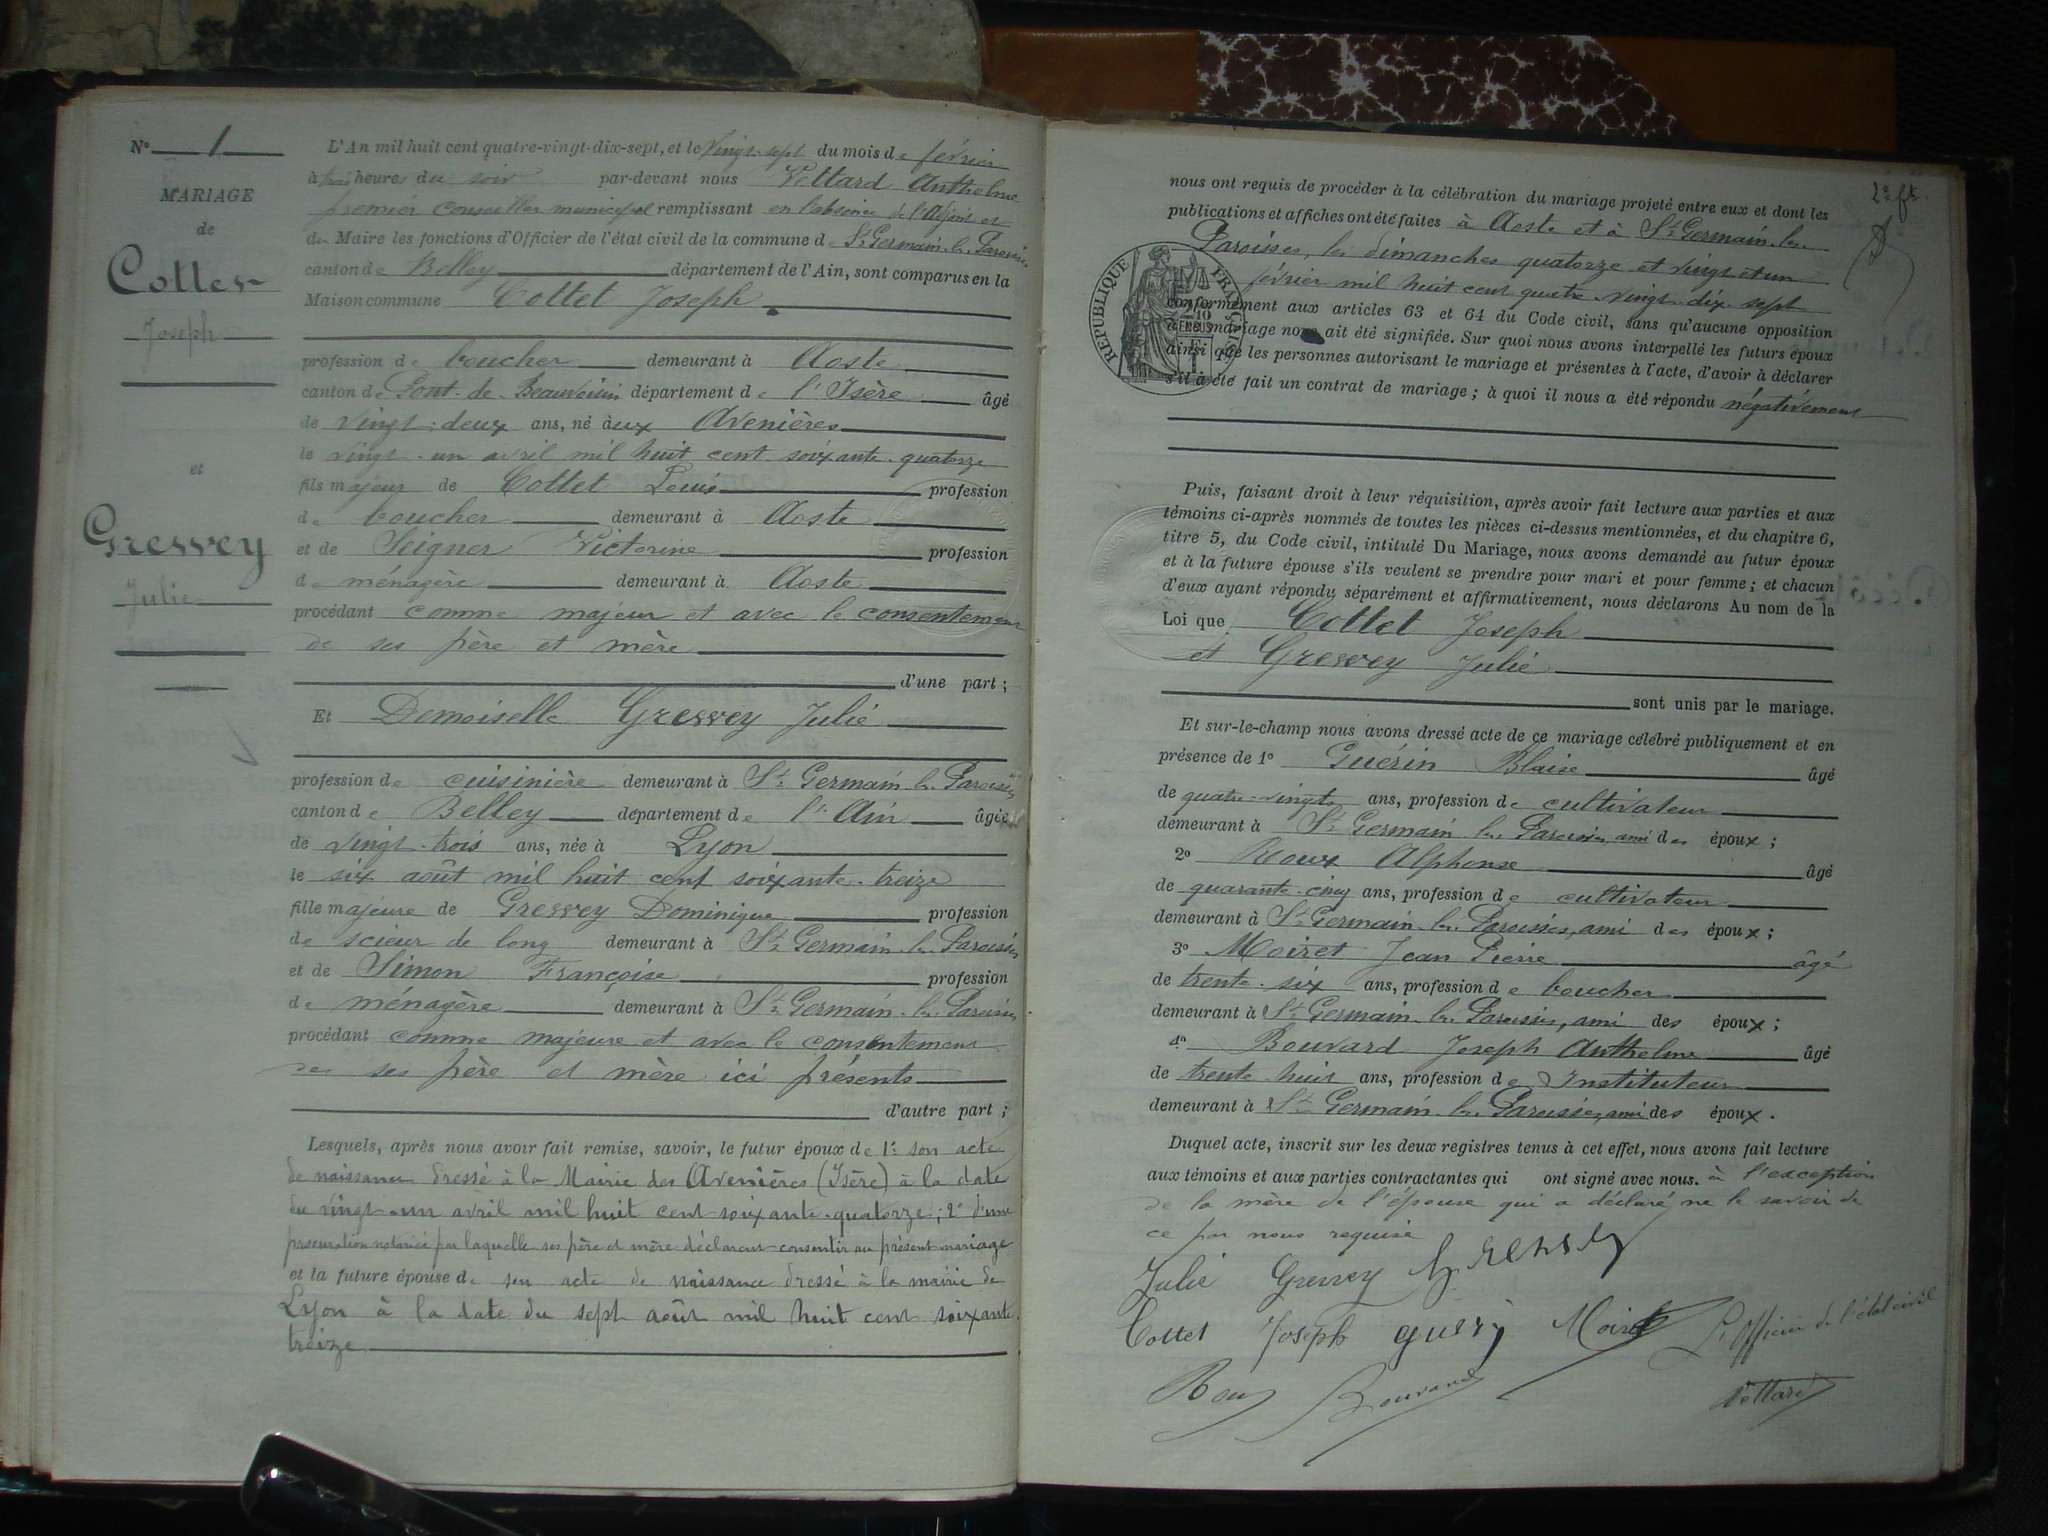 N° 1
MARIAGE
de
Collet
Joseph
et
Gressey
Julie
L'An mil huit cent quatre-vingt-dix-sept, et le vingt-sept du mois de février
à trois heures du soir par-devant nous Vettard Anthelme
premier conseiller municipal remplissant en l'absence de l'Adjoint et
du Maire les fonctions d'Officier de l'état civil de la commune de St Germain-les-Paroisses
canton de Belley département de l'Ain, sont comparus en la
Maison commune Collet Joseph
profession de boucher demeurant à Aoste
canton de Pont-de-Beauvoisin département de l'Isère âgé
de vingt-deux ans, né aux Avenières
le vingt-un avril mil huit cent soixante-quatorze
fils majeur de Collet Louis profession
de boucher demeurant à Aoste
et de Seigner Victorine profession
de ménagère demeurant à Aoste
procédant comme majeur et avec le consentement
de ses père et mère
d'une part ;
Et Demoiselle Gressey Julie
profession de cuisinière demeurant à St Germain-les-Paroisses
canton de Belley département de l'Ain âgée
de vingt-trois ans, née à Lyon
le six août mil huit cent soixante-treize
fille majeure de Gressey Dominique profession
de scieur de long demeurant à St Germain-les-Paroisses
et de Simon Françoise profession
de ménagère demeurant à St Germain-les-Paroisses
procédant comme majeure et avec le consentement
de ses père et mère ici présents
d'autre part ;
Lesquels, après nous avoir fait remise, savoir, le futur époux de 1° son acte
de naissance dressé à la Mairie des Avenières (Isère) à la date
du vingt-un avril mil huit cent soixante-quatorze ; 2° d'une
procuration notariée par laquelle ses père et mère déclarent consentir au présent mariage
et la future épouse de son acte de naissance dressé à la mairie de
Lyon à la date du sept août mil huit cent soixante-
treize,
nous ont requis de procéder à la célébration du mariage projeté entre eux et dont les
publications et affiches ont été faites à Aoste et à St Germain-les-
Paroisses, les dimanches quatorze et vingt et un
février mil huit cent quatre-vingt-dix-sept
conformément aux articles 63 et 64 du Code civil, sans qu'aucune opposition
audit mariage nous ait été signifiée. Sur quoi nous avons interpellé les futurs époux
ainsi que les personnes autorisant le mariage et présentes à l'acte, d'avoir à déclarer
s'il a été fait un contrat de mariage ; à quoi il nous a été répondu négativement
RÉPUBLIQUE FRANÇAISE
Puis, faisant droit à leur réquisition, après avoir fait lecture aux parties et aux
témoins ci-après nommés de toutes les pièces ci-dessus mentionnées, et du chapitre 6,
titre 5, du Code civil, intitulé Du Mariage, nous avons demandé au futur époux
et à la future épouse s'ils veulent se prendre pour mari et pour femme ; et chacun
d'eux ayant répondu séparément et affirmativement, nous déclarons Au nom de la
Loi que Collet Joseph
et Gressey Julie
sont unis par le mariage.
Et sur-le-champ nous avons dressé acte de ce mariage célébré publiquement et en
présence de 1° Guérin Blaise âgé
de quatre-vingts ans, profession de cultivateur
demeurant à St Germain-les-Paroisses, ami des époux ;
2° Roux Alphonse âgé
de quarante-cinq ans, profession de cultivateur
demeurant à St Germain-les-Paroisses, ami des époux ;
3° Moiret Jean Pierre âgé
de trente-six ans, profession de boucher
demeurant à St Germain-les-Paroisses, ami des époux ;
4° Bouvard Joseph Anthelme âgé
de trente-huit ans, profession de Instituteur
demeurant à St Germain-les-Paroisses, ami des époux.
Duquel acte, inscrit sur les deux registres tenus à cet effet, nous avons fait lecture
aux témoins et aux parties contractantes qui ont signé avec nous. à l'exception
de la mère de l'épouse qui a déclaré ne le savoir de
ce par nous requise
Julie Gressey Gressey
Collet Joseph Moiret L'Officier de l'état civil
Roux Bouvard Vettard